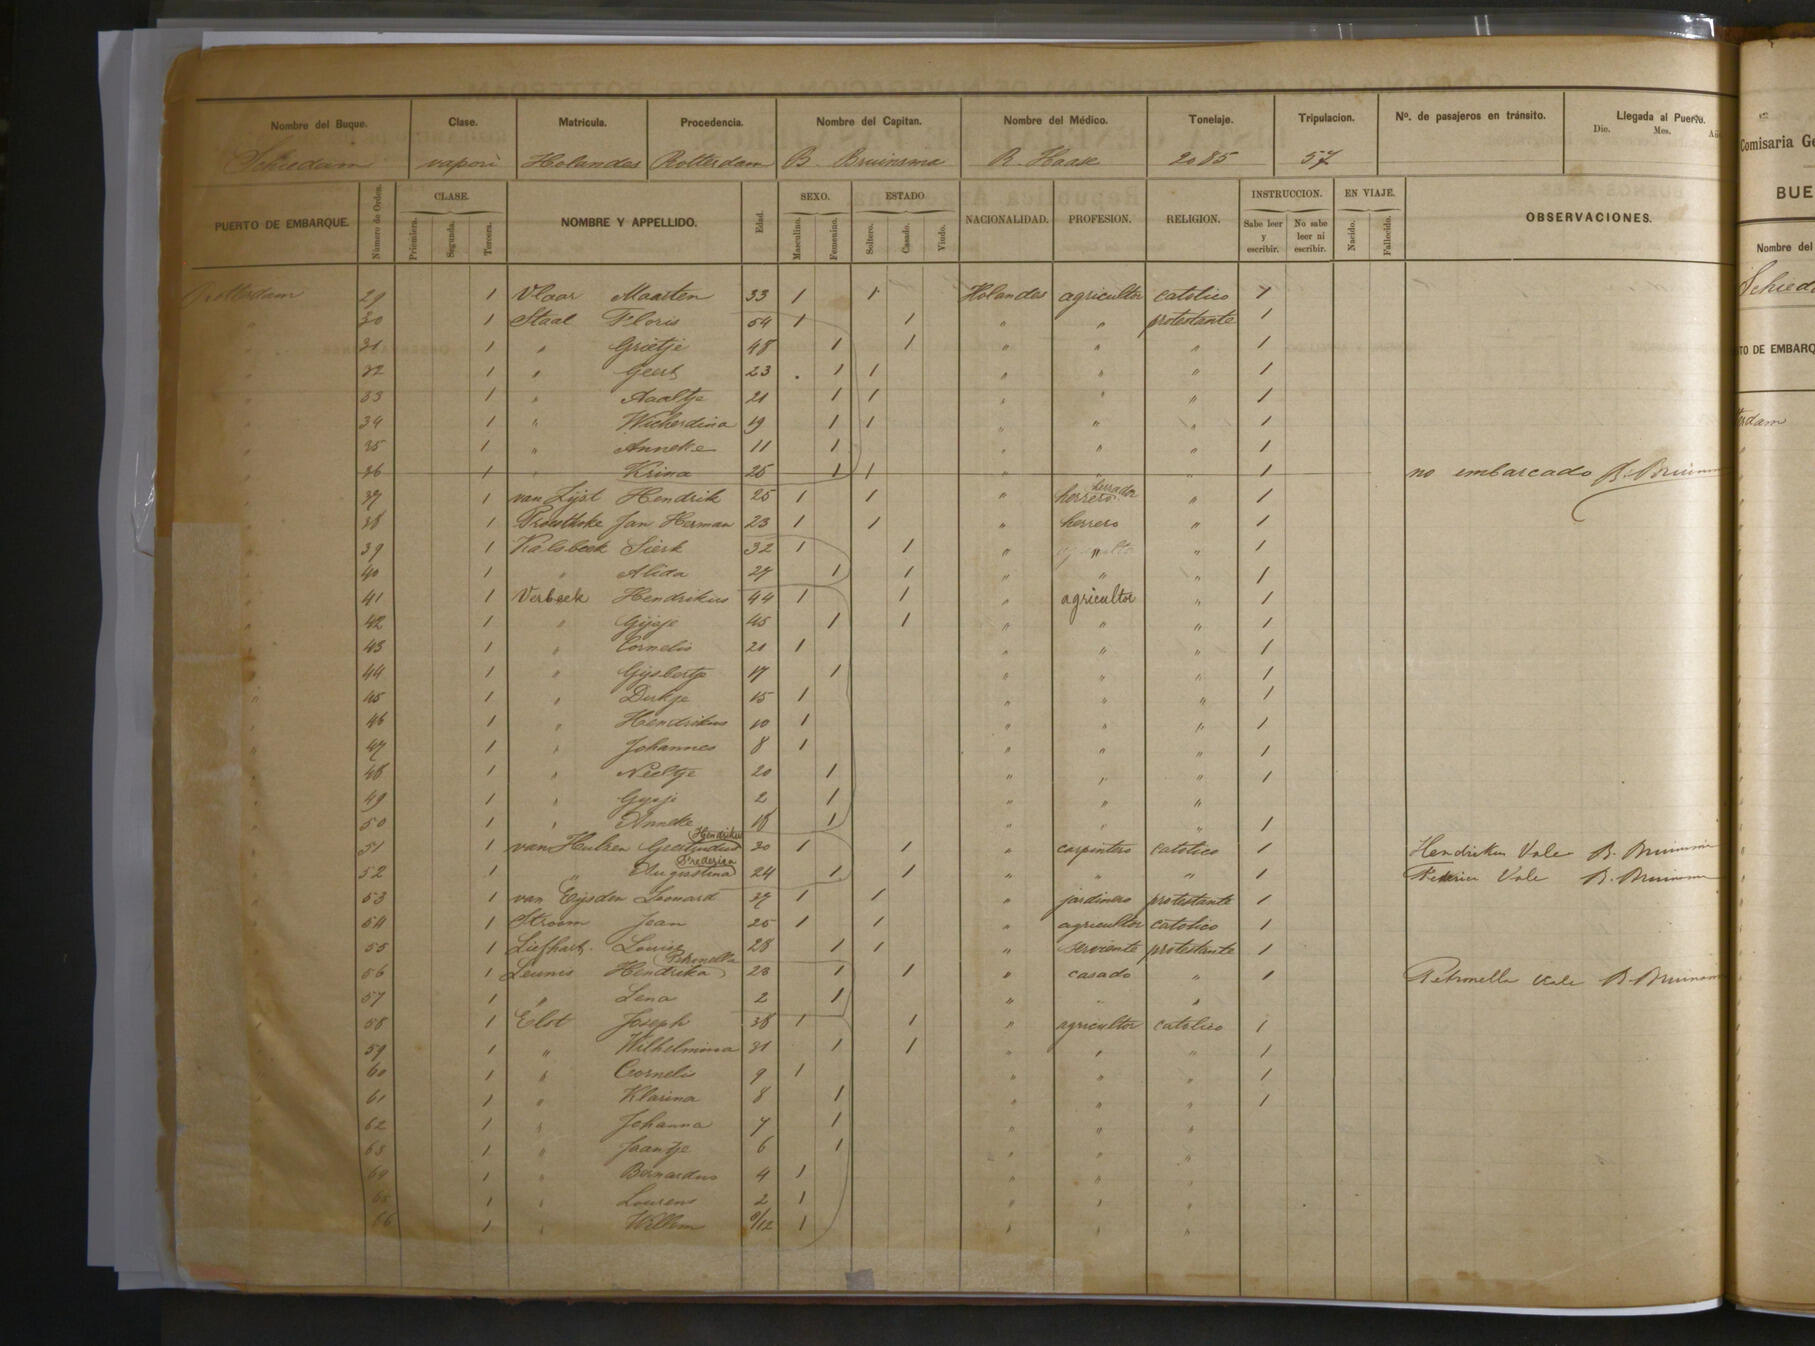 Nombre del Buque. Clase. Matricula. Procedencia. Nombre del Capitan. Nombre del Médico. Tonelaje. Tripulacion. Nº. de pasajeros en tránsito. Llegada al Puerto.
Dio. Mes. Añ
Schiedam vapori Holandes Rotterdam B. Bruinsma R. Haase 2085 57
PUERTO DE EMBARQUE. Número de Orden. CLASE. NOMBRE Y APPELLIDO. Edad. SEXO. ESTADO NACIONALIDAD. PROFESION. RELIGION. INSTRUCCION. EN VIAJE. OBSERVACIONES.
Primiera. Segunda. Tercera. Masculino. Femenino. Soltero. Casado. Viudo. Sabe leer y escribir. No sabe leer ni escribir. Nacido. Fallecido.
Rotterdam 29 1 Vlaar Maarten 33 1 1 Holandes agricultor catolico 1
" 30 1 Staal Floris 54 1 1 " " protestante 1
" 31 1 " Grietje 48 1 1 " " " 1
" 32 1 " Geert 23 1 1 " " " 1
" 33 1 " Aaaltje 21 1 1 " " " 1
" 34 1 " Wicherdina 19 1 1 " " " 1
" 35 1 " Anneke 11 1 " " " 1
" 36 1 " Krina 25 1 1 " " " 1 no embarcado B. Bruinsm
" 37 1 van Lijst Hendrik 25 1 1 " herrero herrador " 1
" 38 1 Jan Herman 23 1 1 " herrero " 1
" 39 1 Kalsbeek Sierk 32 1 1 " " " 1
" 40 1 " Alida 27 1 1 " " " 1
" 41 1 Verbeek Hendrikus 44 1 1 " agricultor " 1
" 42 1 " Gijsje 45 1 1 " " " 1
" 43 1 " Cornelis 21 1 " " " 1
" 44 1 " Gijsbertje 17 1 " " " 1
" 45 1 " Dirkje 15 1 " " " 1
" 46 1 " Hendrikus 10 1 " " " 1
" 47 1 " Johannes 8 1 " " " 1
" 48 1 " Neeltje 20 1 " " " 1
" 49 1 " Gysje 2 1 " " "
" 50 1 " Anneke 18 1 " " " 1
" 51 1 van Hulzen Geertrudus Hendrikus 30 1 1 " carpintero catolico 1 Hendrikus Vale B. Bruinsma
" 52 1 " Augustina Frederica 24 1 1 " " " 1 Vale B. Bruinsma
" 53 1 van Eijsden Leonard 27 1 1 " jardinero protestante 1
" 54 1 Stroom Jean 25 1 1 " agricultor catolico 1
" 55 1 Liefhart. Louise 28 1 1 " serviente protestante 1
" 56 1 Leunis Hendrika Petronella 23 1 1 " casado " 1 Petronella Vale B. Bruinsma
" 57 1 " Lena 2 1 " " "
" 58 1 Elst Joseph 38 1 1 " agricultor catolico 1
" 59 1 " Wilhelmina 31 1 1 " " " 1
" 60 1 " Cornelis 9 1 " " " 1
" 61 1 " Klarina 8 1 " " " 1
" 62 1 " Johanna 7 1 " " "
" 63 1 " Jaantje 6 1 " " "
" 64 1 " Bernardus 4 1 " " "
" 65 1 " Lourens 2 1 " " "
66 1 " Willem 9/12 1 " " "
Comisaria Ge
BUE
Nombre del
Schied
TO DE EMBARQ
rdam